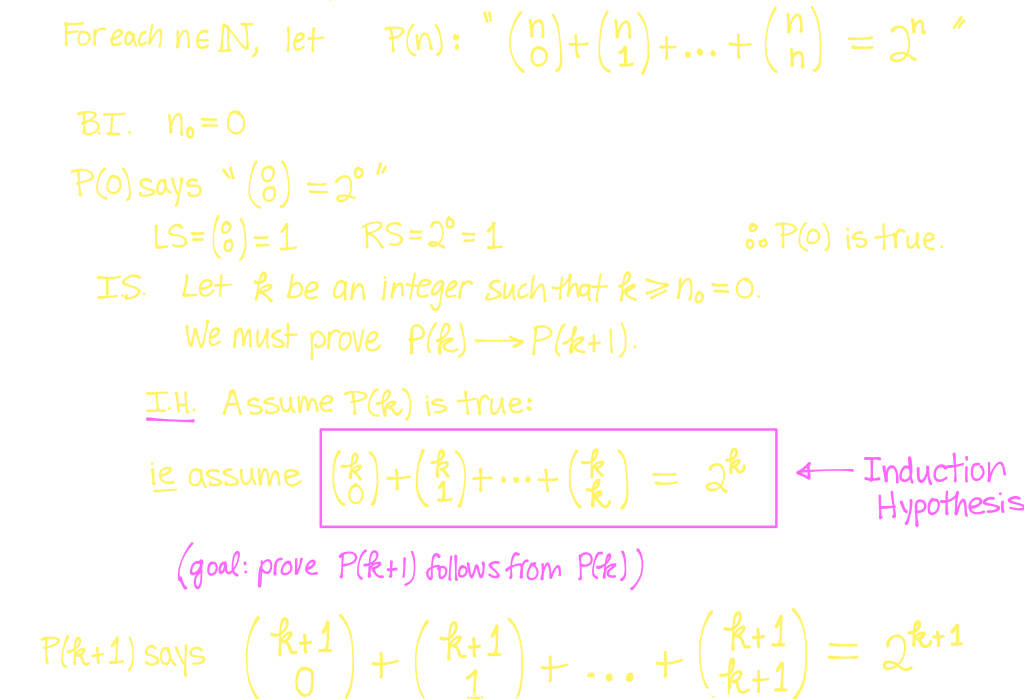 For each n ∈ ℕ, let P(n): "(n 0) + (n 1) + ... + (n n) = 2^n"
B.I. n₀ = 0
P(0) says "(0 0) = 2^0"
LS = (0 0) = 1 RS = 2^0 = 1 ∴ P(0) is true.
I.S. Let k be an integer such that k ≥ n₀ = 0.
We must prove P(k) → P(k+1).
I.H. Assume P(k) is true:
ie assume (k 0) + (k 1) + ... + (k k) = 2^k ← Induction
Hypothesis
(goal: prove P(k+1) follows from P(k))
P(k+1) says (k+1 0) + (k+1 1) + ... + (k+1 k+1) = 2^(k+1)